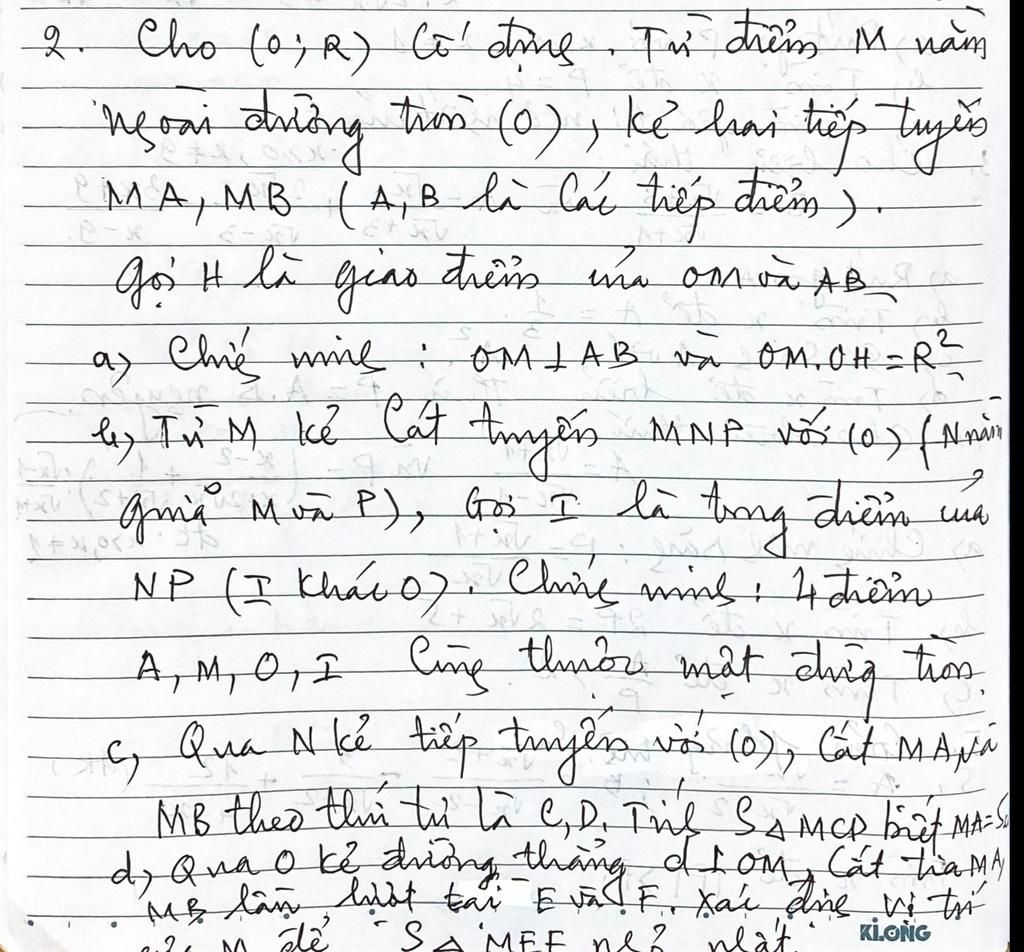 2. Cho (O; R) cố định. Từ điểm M nằm
ngoài đường tròn (O), kẻ hai tiếp tuyến
MA, MB (A, B là các tiếp điểm).
Gọi H là giao điểm của OM và AB
a, Chứng minh: OM ⊥ AB và OM.OH = R²
b, Từ M kẻ cát tuyến MNP với (O) (N nằm
giữa M và P), Gọi I là trung điểm của
NP (I khác O). Chứng minh: 4 điểm
A, M, O, I cùng thuộc một đường tròn.
c, Qua N kẻ tiếp tuyến với (O), cắt MA, và
MB theo thứ tự là C, D. Tính S△MCD biết MA=5
d, Qua O kẻ đường thẳng d ⊥ OM, cắt tia MA,
MB lần lượt tại E và F. Xác định vị trí
của M để S△MEF nhỏ nhất.
KLONG